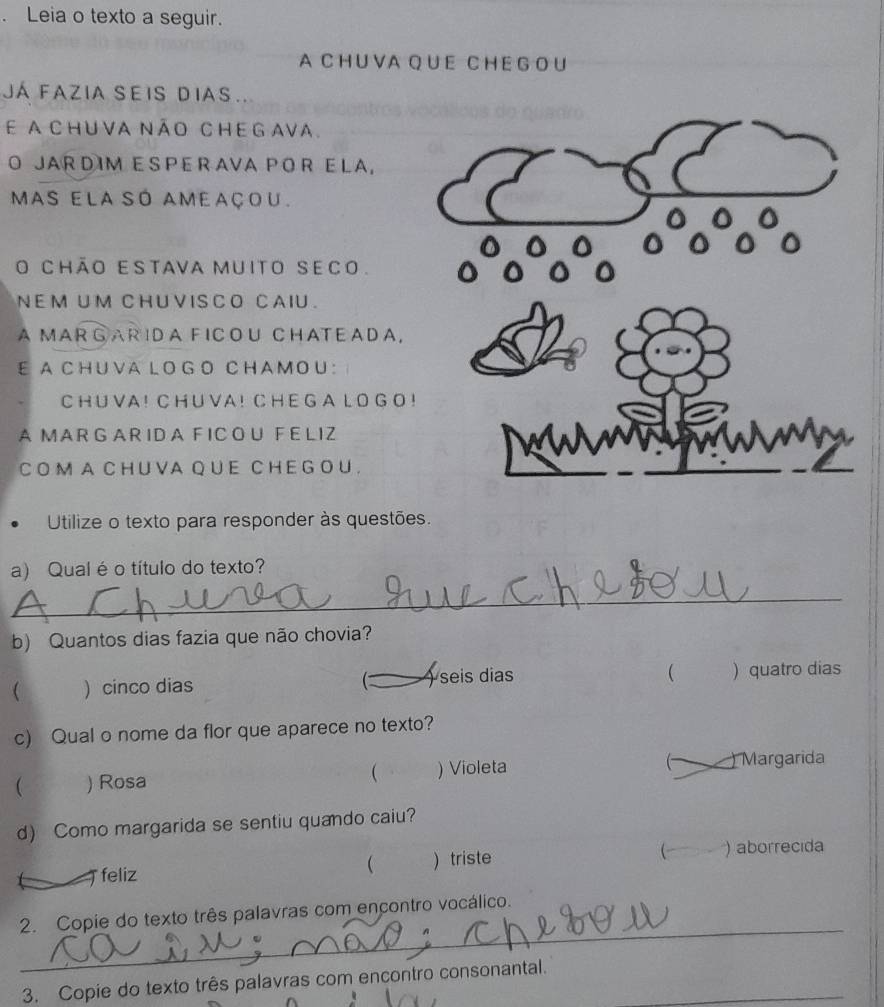 . Leia o texto a seguir.
A CHUVA QUE CHEGOU
JÁ FAZIA SEIS DIAS...
E A CHUVA NÃO CHEGAVA.
O JARDIM ESPERAVA POR ELA,
MAS ELA SÓ AMEAÇOU.
O CHÃO ESTAVA MUITO SECO.
NEM UM CHUVISCO CAIU.
A MARGARIDA FICOU CHATEADA,
E A CHUVA LOGO CHAMOU:
- CHUVA! CHUVA! CHEGA LOGO!
A MARGARIDA FICOU FELIZ
COM A CHUVA QUE CHEGOU.
• Utilize o texto para responder às questões.
a) Qual é o título do texto?
A Chuva que chegou
b) Quantos dias fazia que não chovia?
( ) cinco dias ( ) seis dias ( ) quatro dias
c) Qual o nome da flor que aparece no texto?
( ) Rosa ( ) Violeta ( ) Margarida
d) Como margarida se sentiu quando caiu?
( ) feliz ( ) triste ( ) aborrecida
2. Copie do texto três palavras com encontro vocálico.
caiu; não; chegou
3. Copie do texto três palavras com encontro consonantal.